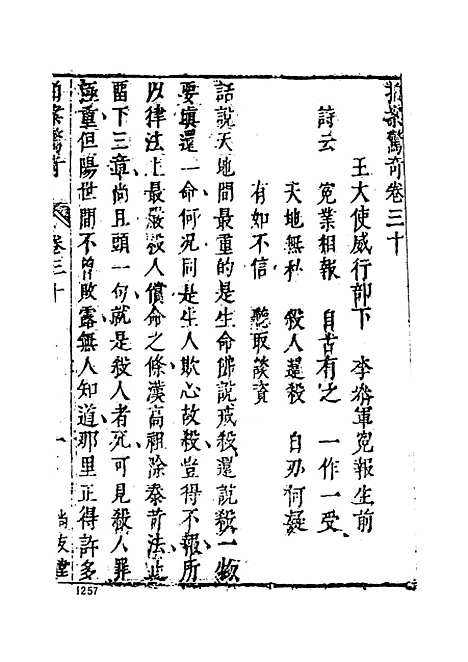 拍案驚奇卷三十
王大使威行部下　李叅軍寃報生前
詩云　寃業相報　自古有之　一作一受
天地無私　殺人還殺　自刃何疑
有如不信　聽取談資
話說天地間最重的是生命佛說戒殺還說殺一物
要塡還一命何况同是生人欺心故殺豈得不報所
以律法上最嚴殺人償命之條漢高祖除秦苛法止
留下三章尚且頭一句就是殺人者死可見殺人罪
極重但陽世間不曾敗露無人知道那里正得許多
拍案驚奇　卷三十　一　尚友堂
1257